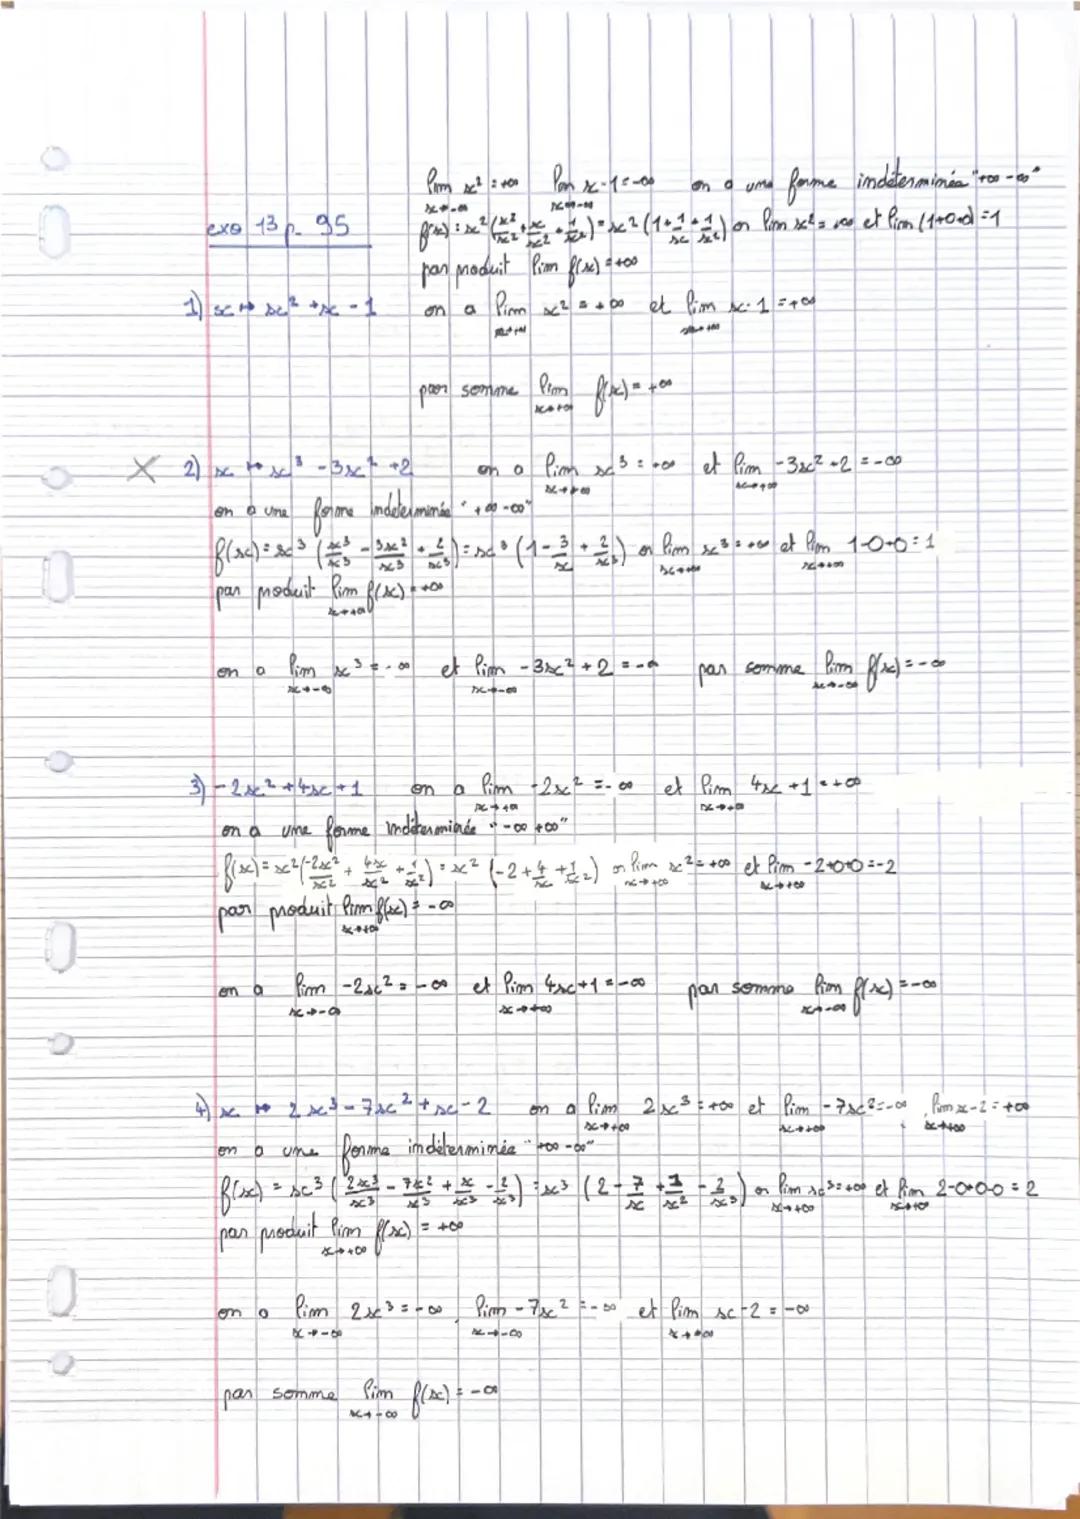 lim x² = +∞ lim x-1 = -∞ on a une forme indéterminée "+∞ -∞"
x→-∞ x→-∞
exo 13 p. 95
f(x) = x² (x²/x² + x/x² - 1/x²) = x² (1 + 1/x - 1/x²) or lim x² = +∞ et lim (1+0+0) = 1
par produit lim f(x) = +∞
1) x ↦ x² + x - 1 on a lim x² = +∞ et lim x-1 = +∞
x→+∞ x→+∞
par somme lim f(x) = +∞
x→+∞
2) x ↦ x³ - 3x² + 2 on a lim x³ = +∞ et lim -3x² + 2 = -∞
x→+∞ x→+∞
on a une forme indéterminée "+∞ -∞"
f(x) = x³ (x³/x³ - 3x²/x³ + 2/x³) = x³ (1 - 3/x + 2/x³) or lim x³ = +∞ et lim 1-0+0 = 1
x→+∞ x→+∞
par produit lim f(x) = +∞
x→+∞
on a lim x³ = -∞ et lim -3x² + 2 = -∞ par somme lim f(x) = -∞
x→-∞ x→-∞ x→-∞
3) -2x² + 4x + 1 on a lim -2x² = -∞ et lim 4x + 1 = +∞
x→+∞ x→+∞
on a une forme indéterminée "-∞ +∞"
f(x) = x² (-2x²/x² + 4x/x² + 1/x²) = x² (-2 + 4/x + 1/x²) or lim x² = +∞ et lim -2+0+0 = -2
x→+∞ x→+∞
par produit lim f(x) = -∞
x→+∞
on a lim -2x² = -∞ et lim 4x+1 = -∞ par somme lim f(x) = -∞
x→-∞ x→+∞ x→-∞
4) x ↦ 2x³ - 7x² + x - 2 on a lim 2x³ = +∞ et lim -7x² = -∞, lim x-2 = +∞
x→+∞ x→+∞ x→+∞
on a une forme indéterminée "+∞ -∞"
f(x) = x³ (2x³/x³ - 7x²/x³ + x/x³ - 2/x³) = x³ (2 - 7/x + 1/x² - 2/x³) or lim x³ = +∞ et lim 2-0+0-0 = 2
x→+∞ x→+∞
par produit lim f(x) = +∞
x→+∞
on a lim 2x³ = -∞, lim -7x² = -∞ et lim x-2 = -∞
x→-∞ x→-∞ x→-∞
par somme lim f(x) = -∞
x→-∞